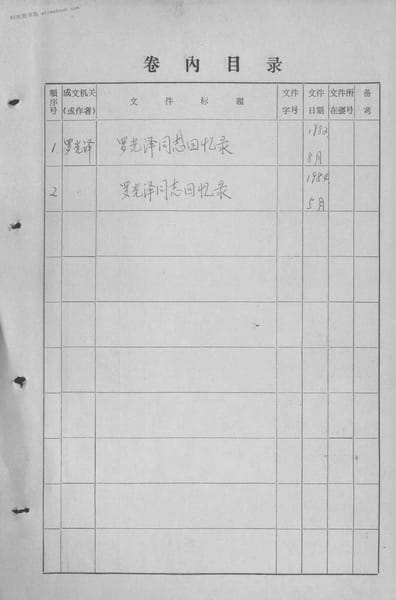 卷内目录
順序号 成文机关(或作者) 文件标题 文件字号 文件日期 文件所在張号 备考
1 罗光泽 罗光泽同志回忆录 1982 8月
2 罗光泽同志回忆录 1984 5月